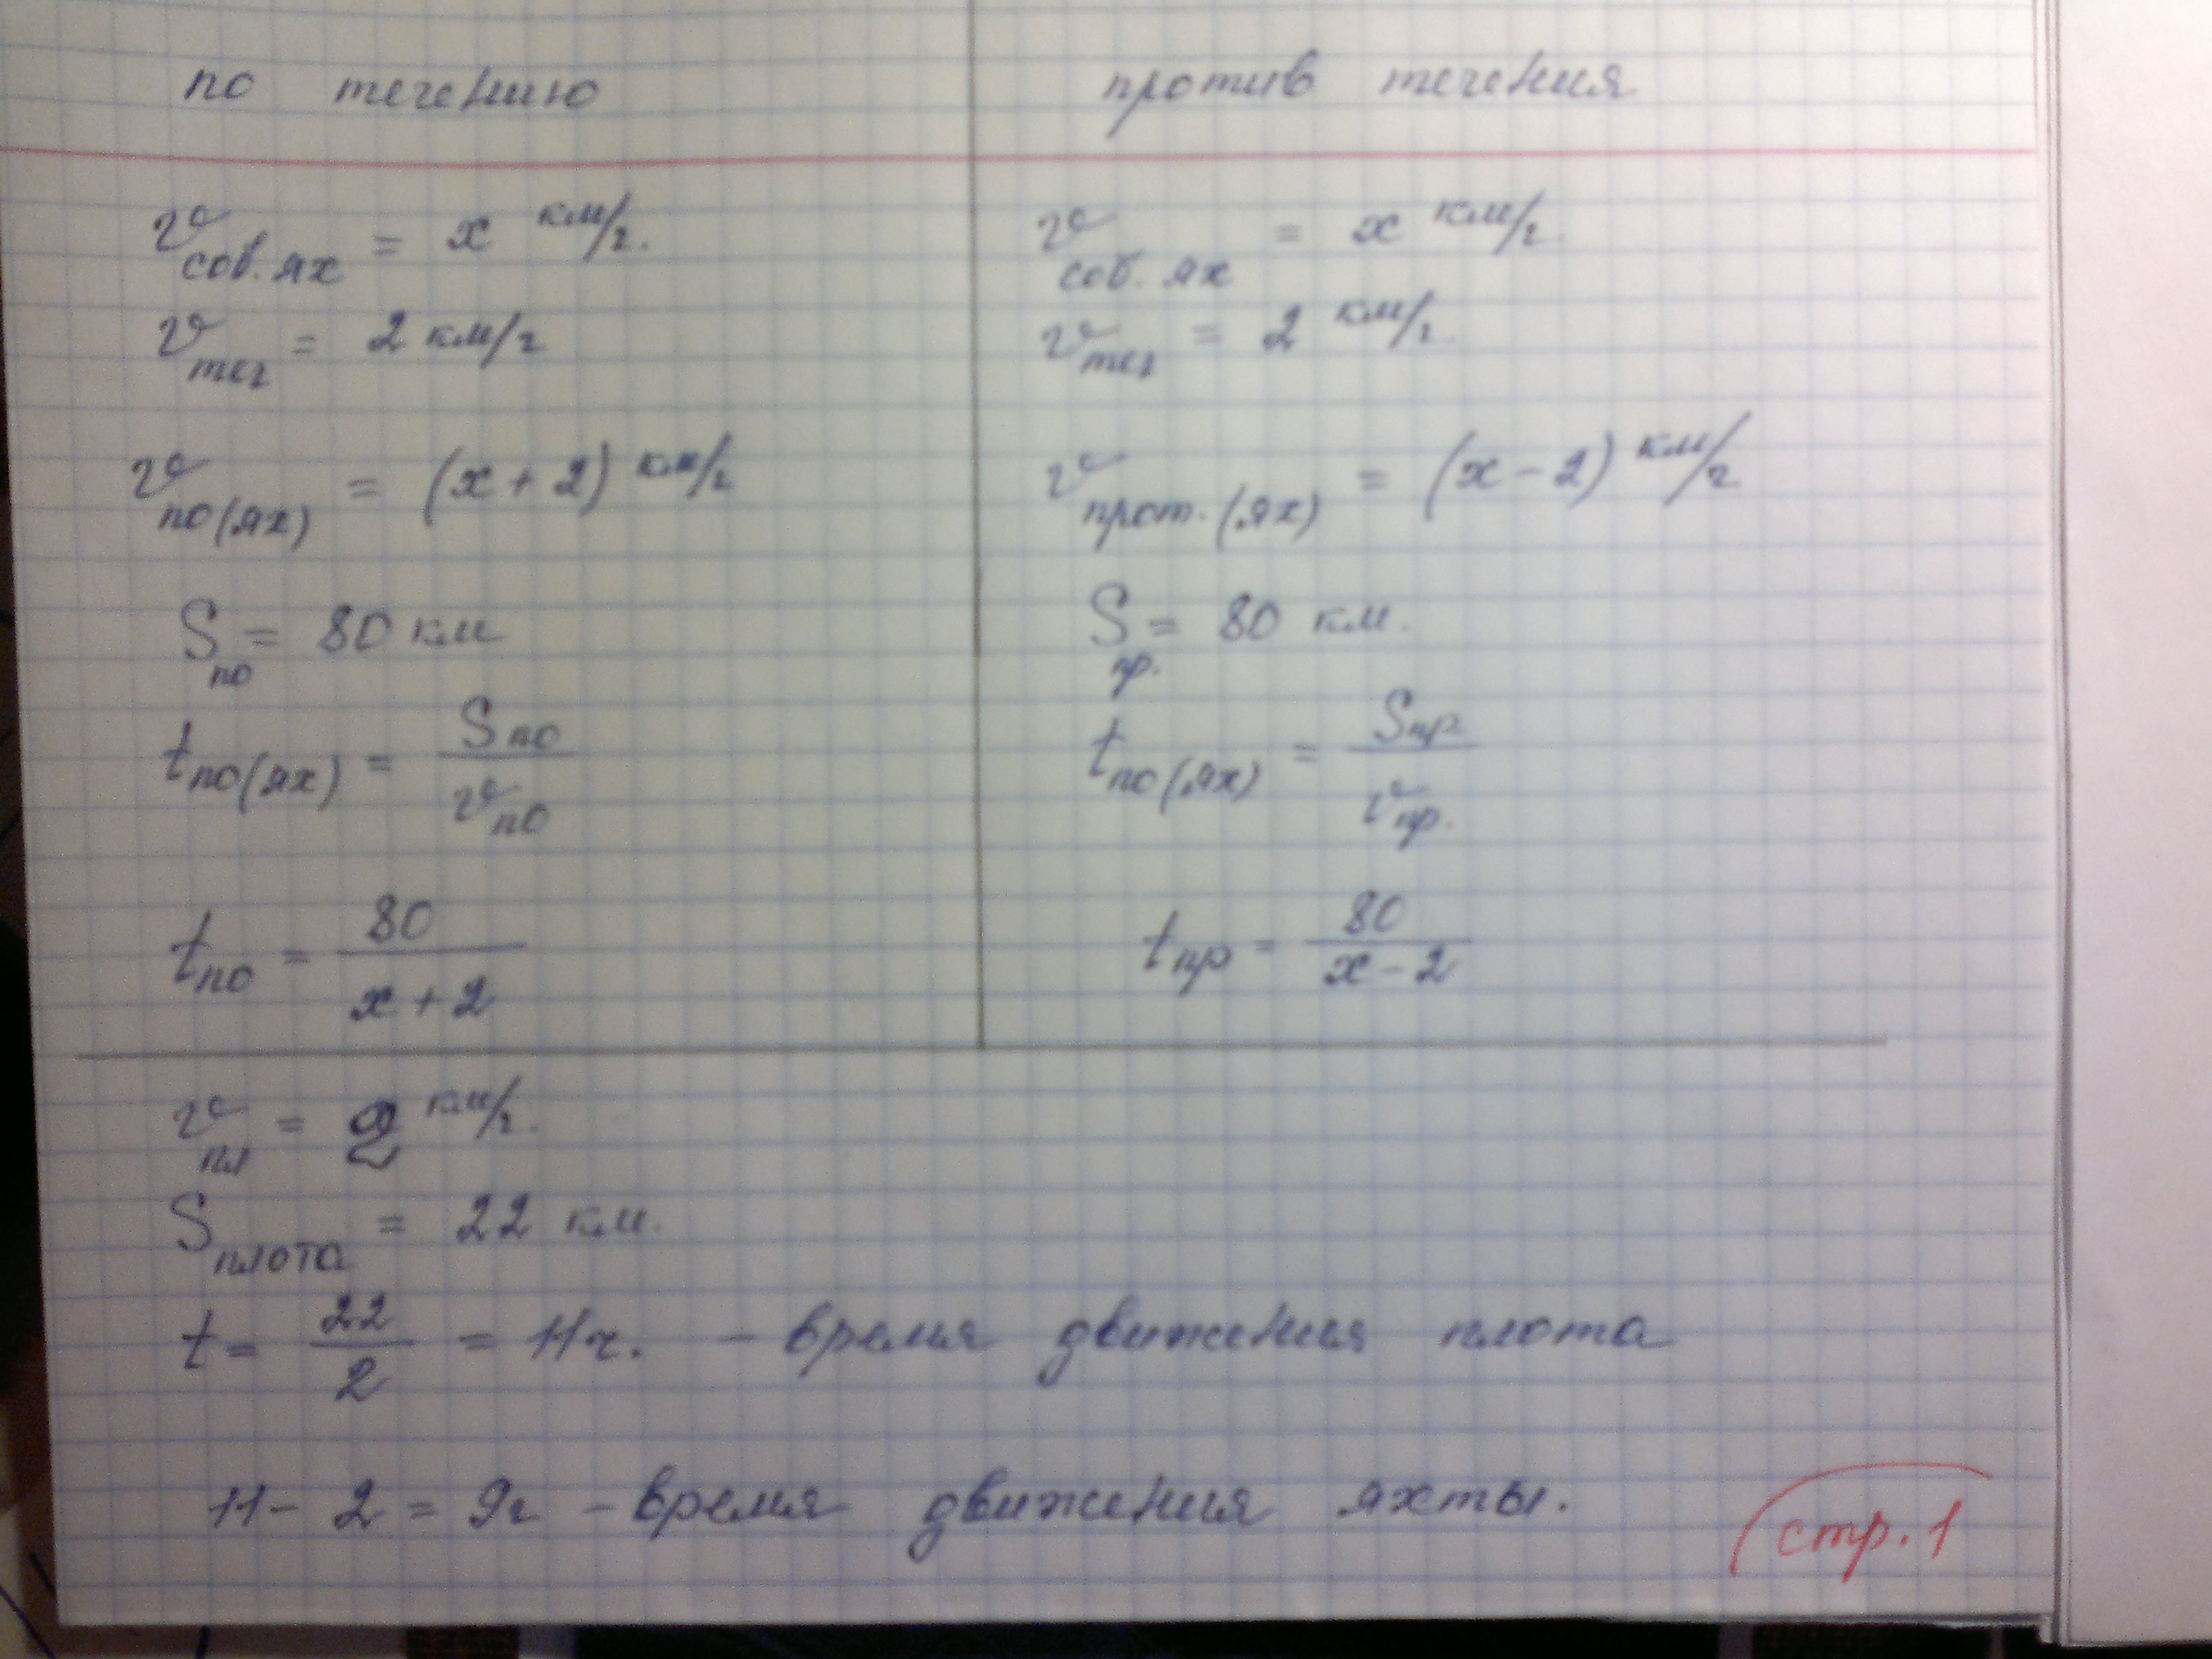 по течению
v соб. ях = x км/ч.
v теч = 2 км/ч
v по(ях) = (x + 2) км/ч
S по = 80 км
t по(ях) = S по / v по
t по = 80 / x + 2
против течения
v соб. ях = x км/ч.
v теч = 2 км/ч.
v прот. (ях) = (x - 2) км/ч
S пр. = 80 км.
t по(ях) = S пр / v пр.
t пр = 80 / x - 2
v пл = 2 км/ч.
S плота = 22 км.
t = 22 / 2 = 11 ч. - время движения плота
11 - 2 = 9ч - время движения яхты.
стр. 1